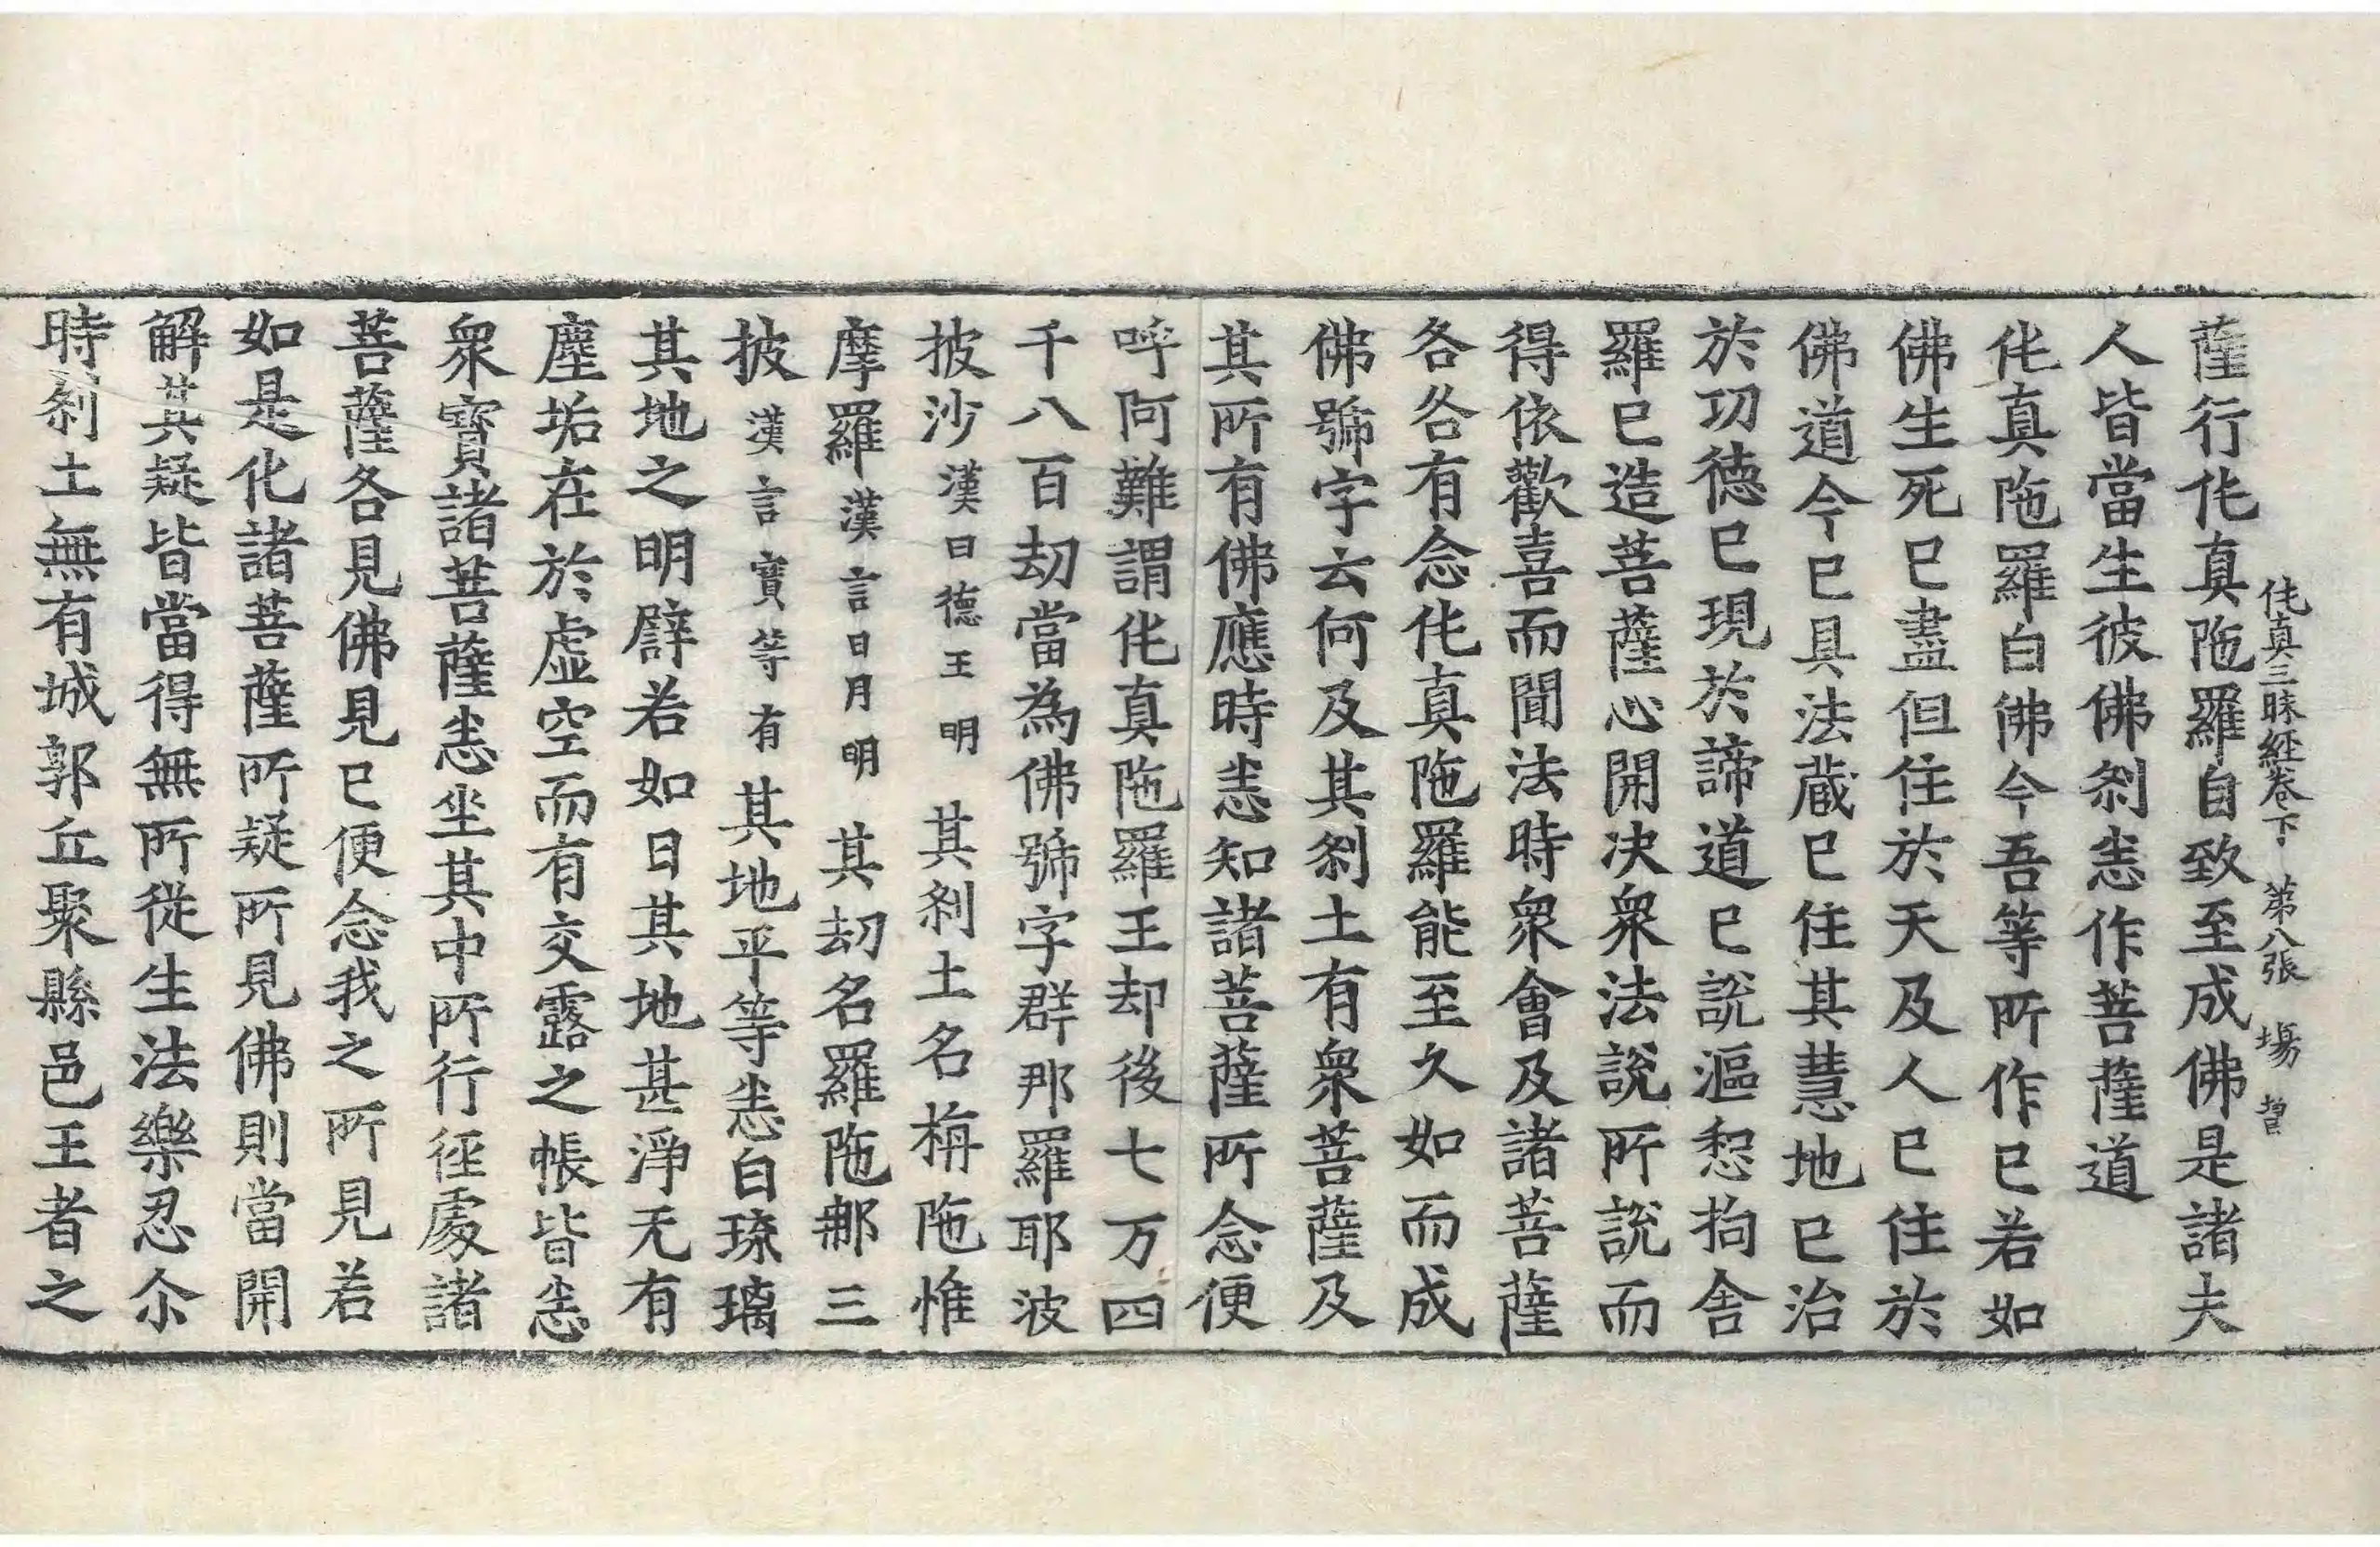 薩行仛真陁羅自致至成佛是諸夫
仛真三昧經卷下　第八張　場
人皆當生彼佛剎恚作菩薩道
仛真陁羅白佛今吾等所作已若如
佛生死已盡但住於天及人已住於
佛道今已具法蔵已住其慧地已治
於功德已現於諦道已說漚惒拘舍
羅已造菩薩心開决衆法說所說而
得依歡喜而聞法時衆會及諸菩薩
各各有念仛真陁羅能至久如而成
佛號字云何及其剎土有衆菩薩及
其所有佛應時恚知諸菩薩所念便
呼阿難謂仛真陁羅王却後七万四
千八百劫當為佛號字群那羅耶波
披沙漢曰德王明　其剎土名栴陁惟
摩羅漢言日月明　其劫名羅陁那三
披漢言寶等有其地平等恚自琉璃
其地之明譬若如日其地甚淨无有
塵垢在於虛空而有交露之帳皆恚
衆寶諸菩薩恚坐其中所行徑處諸
菩薩各見佛見已便念我之所見若
如是化諸菩薩所疑所見佛則當開
解其疑皆當得無所從生法樂忍尒
時剎土無有城郭丘聚縣邑王者之